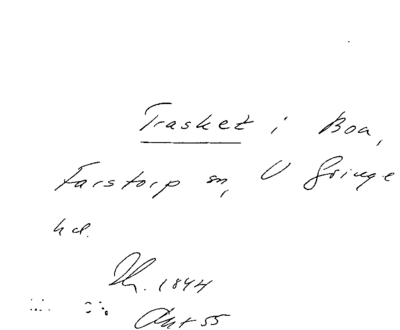 Trasket i Boa,
Farstorp sn, V Göinge
hd.
1844
55